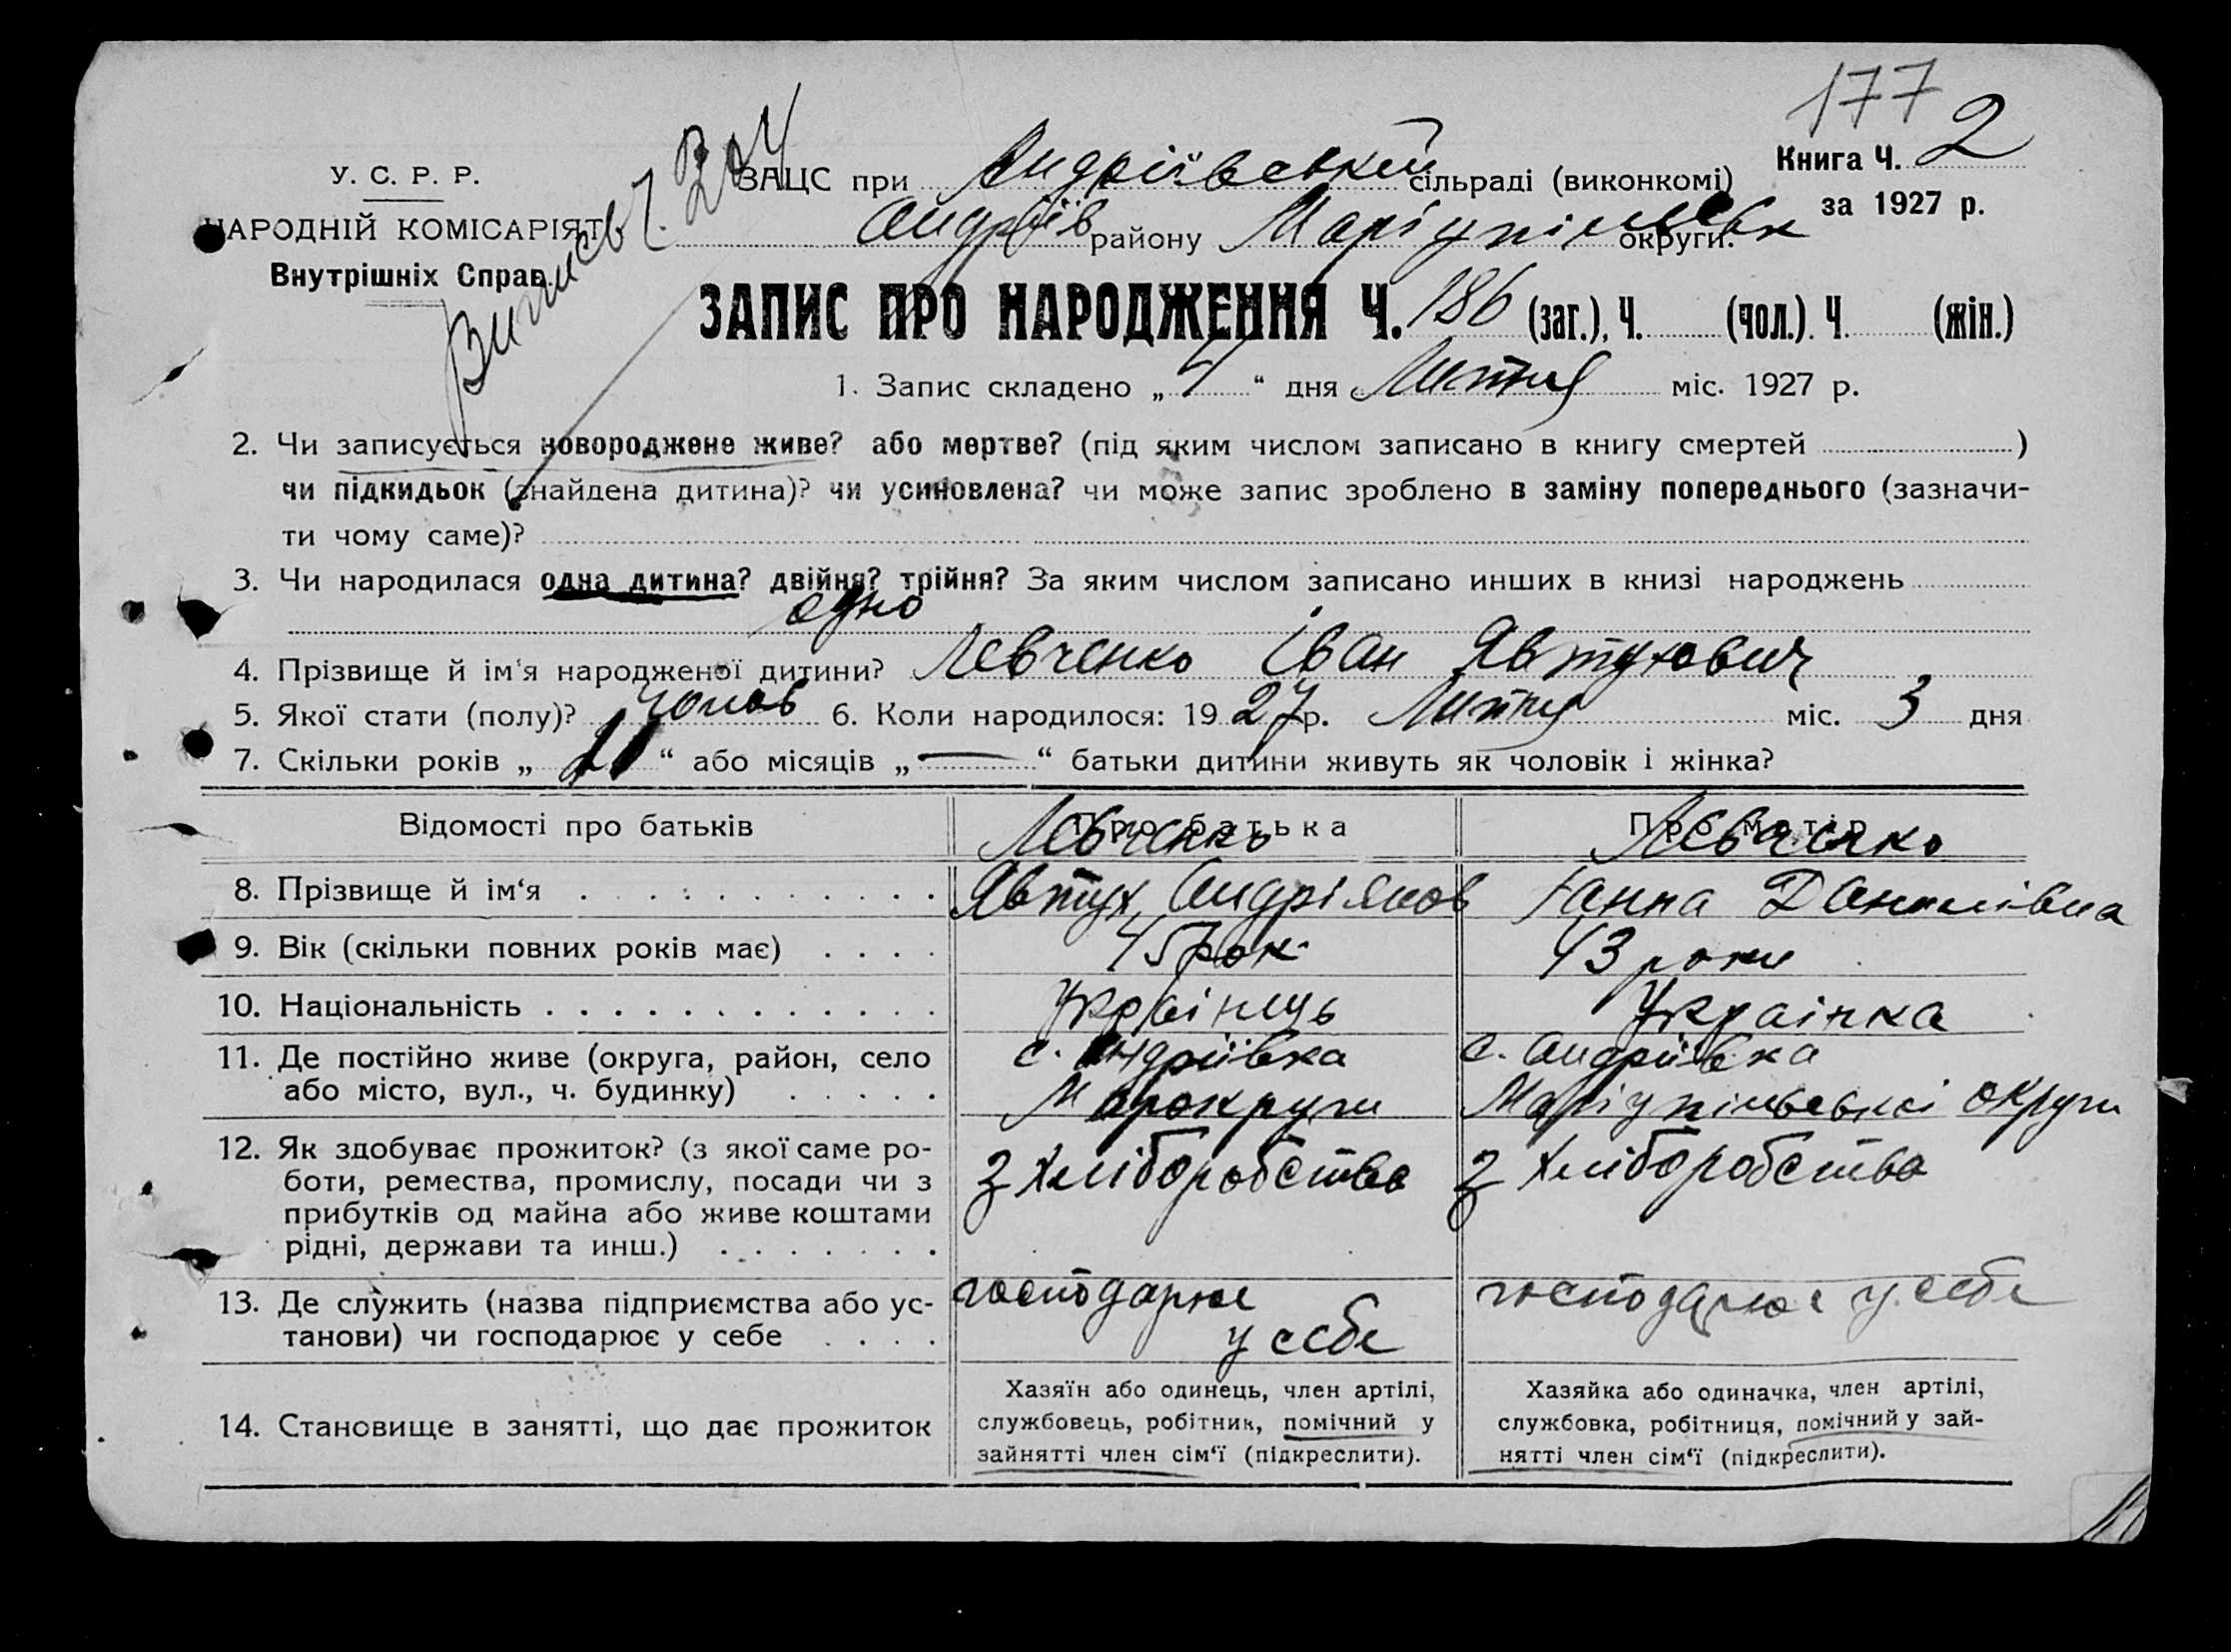 177
У. С. Р. Р.
НАРОДНІЙ КОМІСАРІЯТ
Внутрішніх Справ.
ЗАЦС при Андріївській сільраді (виконкомі)
Андріїв району Маріупільськ округи.
Книга Ч. 2
за 1927 р.
ЗАПИС ПРО НАРОДЖЕННЯ Ч. 186 (заг.), Ч. (чол.). Ч. (жін.)
1. Запис складено „4“ дня Липня міс. 1927 р.
2. Чи записується новороджене живе? або мертве? (під яким числом записано в книгу смертей )
чи підкидьок (знайдена дитина)? чи усиновлена? чи може запис зроблено в заміну попереднього (зазначи-
ти чому саме)?
3. Чи народилася одна дитина? двійня? трійня? За яким числом записано инших в книзі народжень
одно
4. Прізвище й ім'я народженої дитини? Левченко Іван Явтухович
5. Якої стати (полу)? чолов 6. Коли народилося: 1927 р. Липня міс. 3 дня
7. Скільки років „ “ або місяців „—“ батьки дитини живуть як чоловік і жінка?
Відомості про батьків Про батька Про матір
Левченко Левченко
8. Прізвище й ім‘я Явтух Андріянов Ганна Данилівна
9. Вік (скільки повних років має) 45 рок 43 роки
10. Національність Українець Українка
11. Де постійно живе (округа, район, село с. Андріївка с. Андріївка
або місто, вул., ч. будинку) Марокруги Маріупільської округи
12. Як здобуває прожиток? (з якої саме ро-
боти, ремества, промислу, посади чи з з хліборобства з хліборобства
прибутків од майна або живе коштами
рідні, держави та инш.)
13. Де служить (назва підприємства або ус- господарює господарює у себе
танови) чи господарює у себе у себе
Хазяїн або одинець, член артілі, Хазяйка або одиначка, член артілі,
14. Становище в занятті, що дає прожиток службовець, робітник, помічний у службовка, робітниця, помічний у зай-
зайнятті член сім‘ї (підкреслити). нятті член сім‘ї (підкреслити).